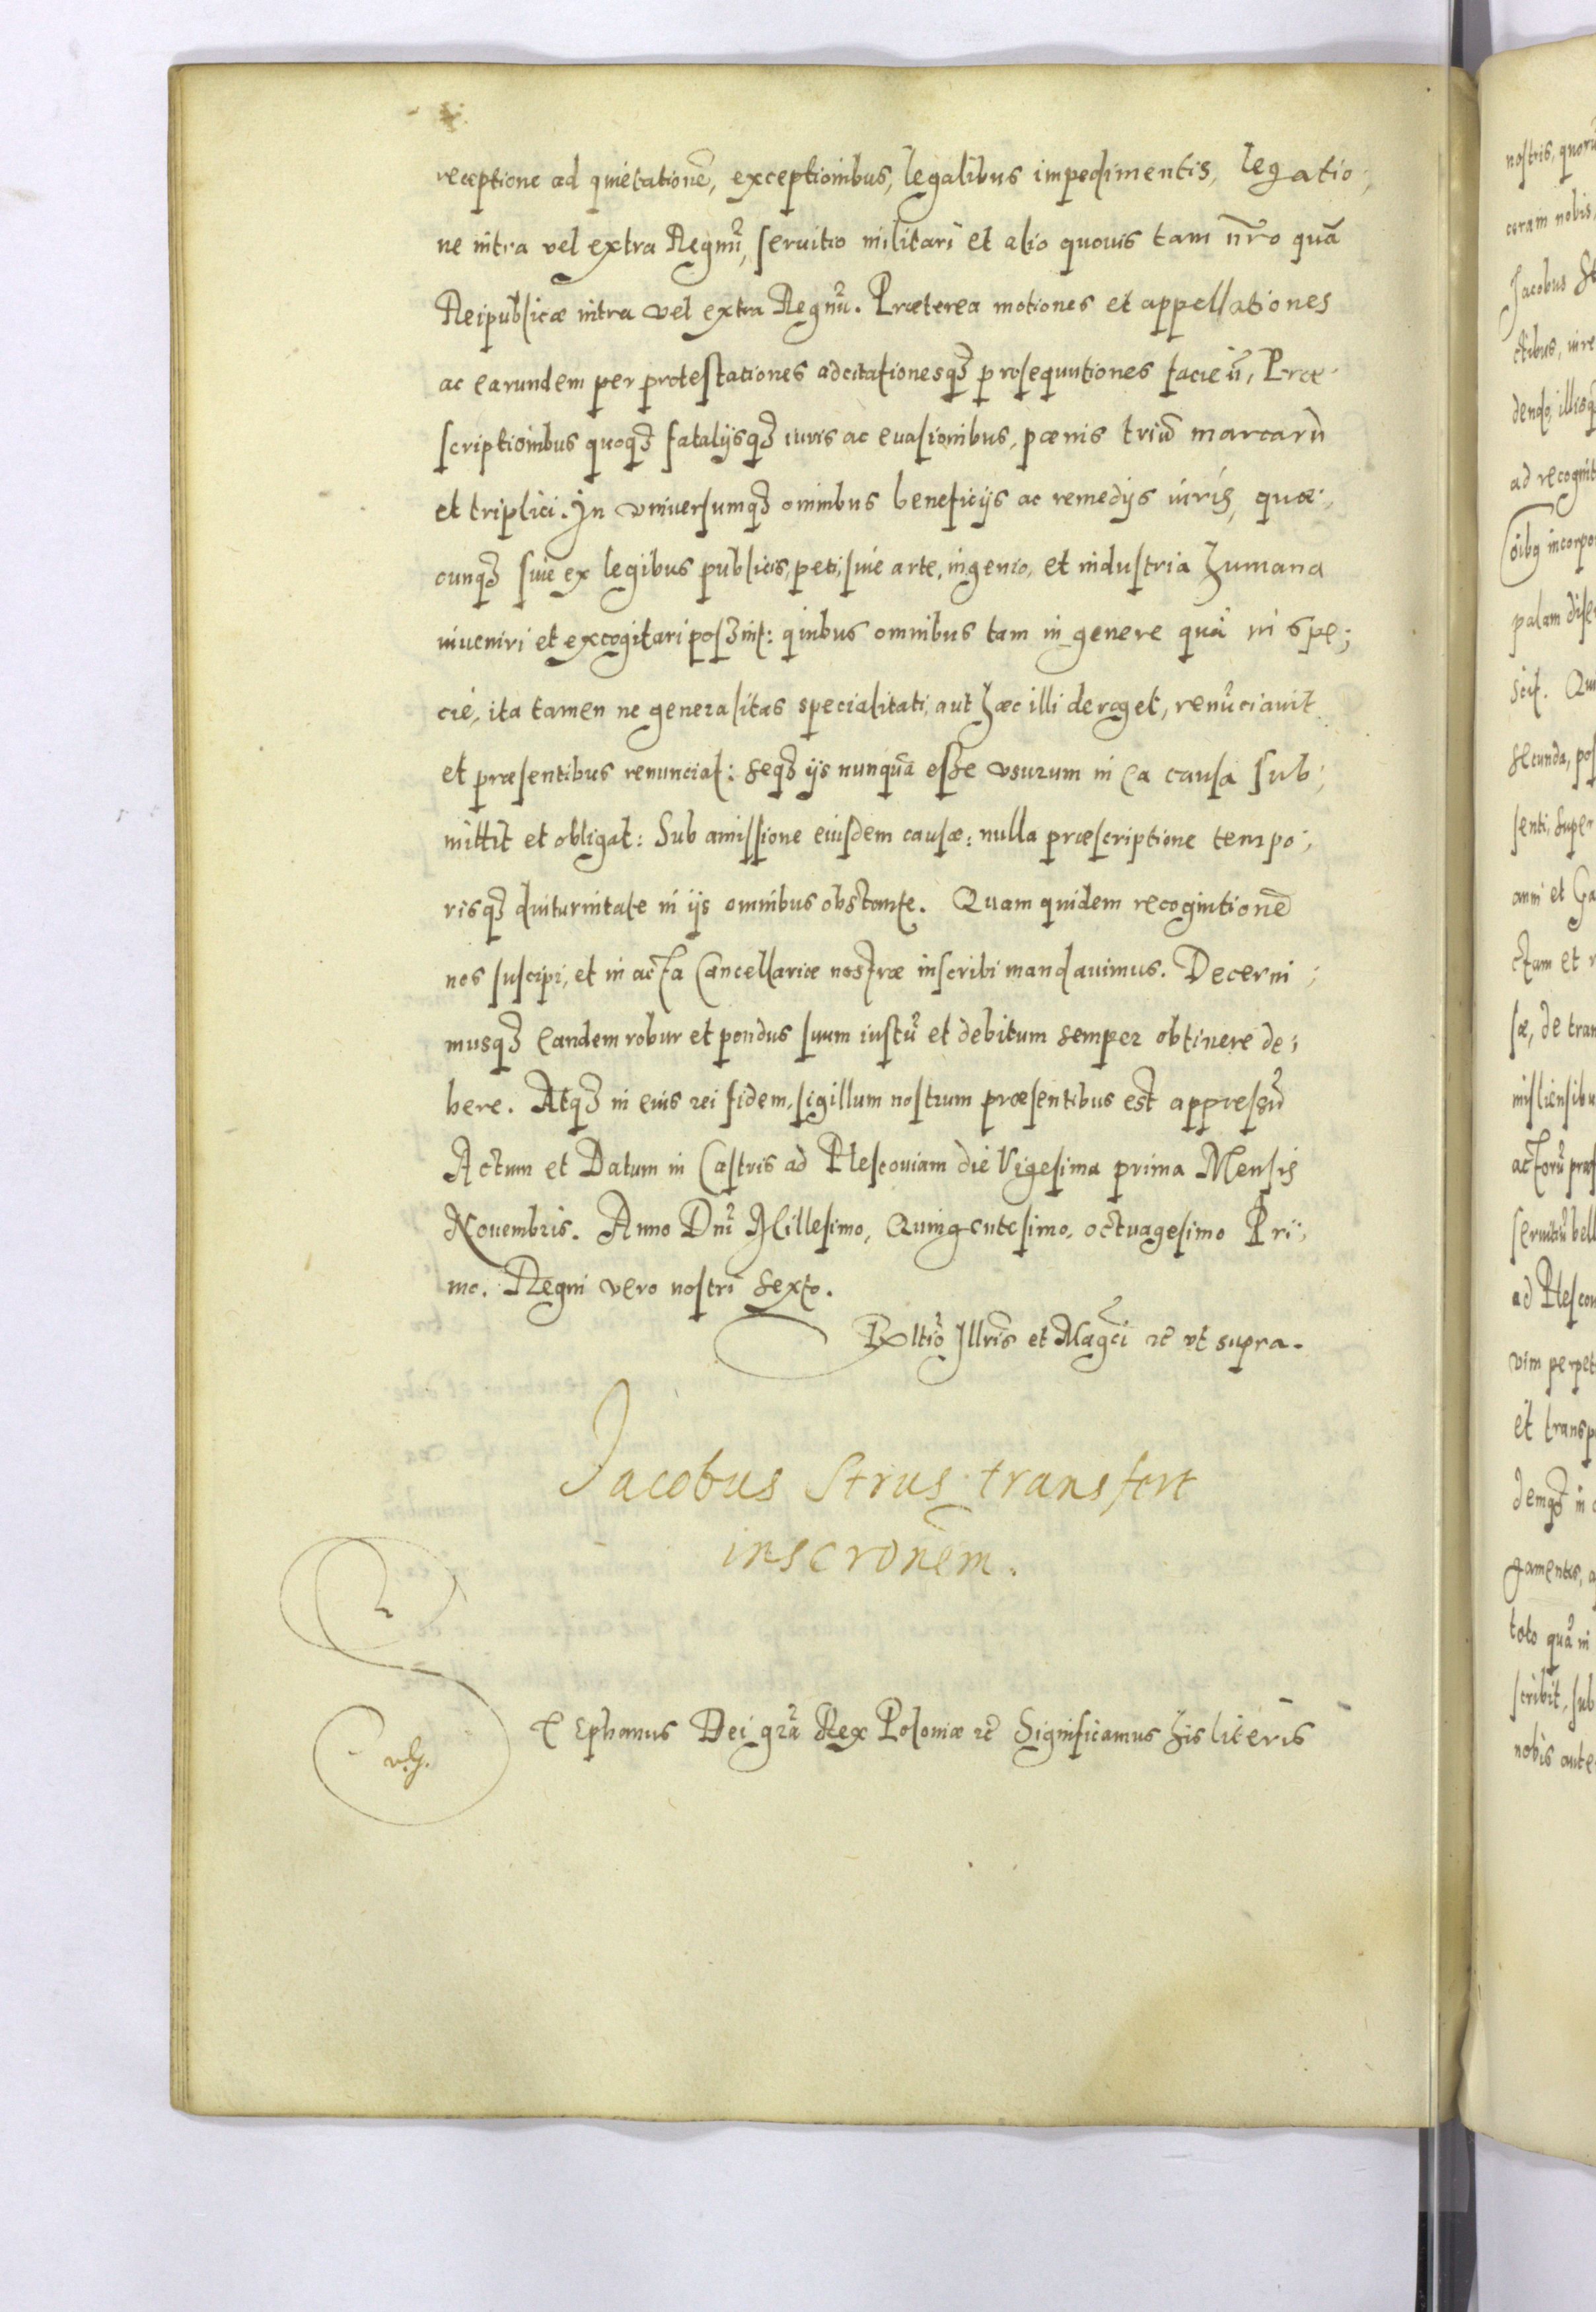 receptione ad quietationē, exceptionibus, legalibus impedimentis, legatio:
ne intra vel extra Regnū, seruitio militari et alio quouis tam nr̄o quā
Reipublicæ intra vel extra Regnū. Præterea motiones et appellationes
ac earundem per protestationes adcitationesq3 prosequutiones facien̄, Præ:
scriptionibus quoq3 fatalijsq3 iuris ac euasionibus, pœnis triū marcarū
et triplici. In vniuersumq3 omnibus beneficijs ac remedijs iuris, quæ:
cunq3 siue ex legibus publicis, peti, siue arte, ingenio, et industria humana
inueniri et excogitari possint: quibus omnibus tam in genere quā in spe:
cie, ita tamen ne generalitas specialitati, aut hæc illi deroget, renūciauit
et præsentibus renunciat: seq3 ijs nunquā esse vsurum in ea causa sub:
mittit et obligat: Sub amissione eiusdem causæ: nulla præscriptione tempo:
risq3 diuturnitate in ijs omnibus obstante. Quam quidem recognitionē
nos suscipi, et in acta Cancellariæ nostræ inscribi mandauimus. Decerni:
musq3 eandem robur et pondus suum iustū et debitum semper obtinere de:
bere. Atq3 in eius rei fidem, sigillum nostrum præsentibus est appressū
Actum et Datum in Castris ad Plescouiam die Vigesima prima Mensis
Nouembris. Anno Dnī Millesimo, Quingentesimo, octuagesimo Pri:
mo. Regni vero nostri sexto.
Rltiō Illris et Magci ꝛc̄ vt supra.
Jacobus Strus transfert
inscrōnem.
Ephanus Dei gr̄a Rex Poloniæ ꝛc̄ Significamus his literis
nostris, quorū
coram nobis,
Jacobus St
ctibus, iure
dendo, illisq
ad recognit
oibq incorpo
palam
scit. Qu
secunda, pos
senti, super
anni et Ga
ctam et
sæ, de tran
misliensibu
actorū præs
seruitiū bell
ad Plescou
vim perpet
et transp
demq3 in
gamentis, a
toto quā in
scribit, sub
nobis ante